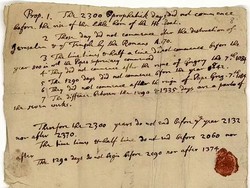 Prop. 1. The 2300 prophetick days did not commence
before the rise of the little horn of the He Goat.
2 Those day did not commence after the destruction of
Jerusalem & ye Temple by the Romans A.
3 The time times & half a time did not commence before the
year 800 in wch the Popes supremacy commenced
4 They did not commence after the re of Gregory the 7th
5 The 1290 days did not commence before the year 842.
6 They did not commence after the reign of Pope Greg. 7th
7 The difference between the 1290 & 1335 days are a parts of
the seven weeks.
Therefore the 2300 years do not end before ye year 2132
nor after 2370.
The time times & half time do not end before 2060 nor
after
The 1290 days do not begin before 2090 nor after 1374